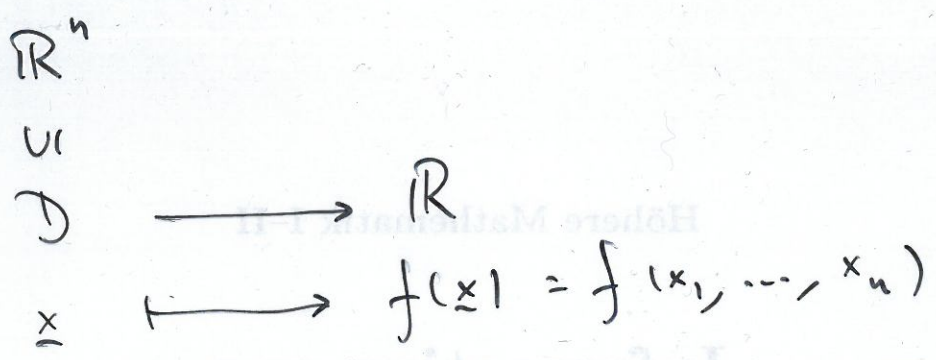 ℝⁿ
∪|
D ⟶ ℝ
x̲ ⟼ f(x̲) = f(x₁, ..., xₙ)
Höhere Mathematik I-II